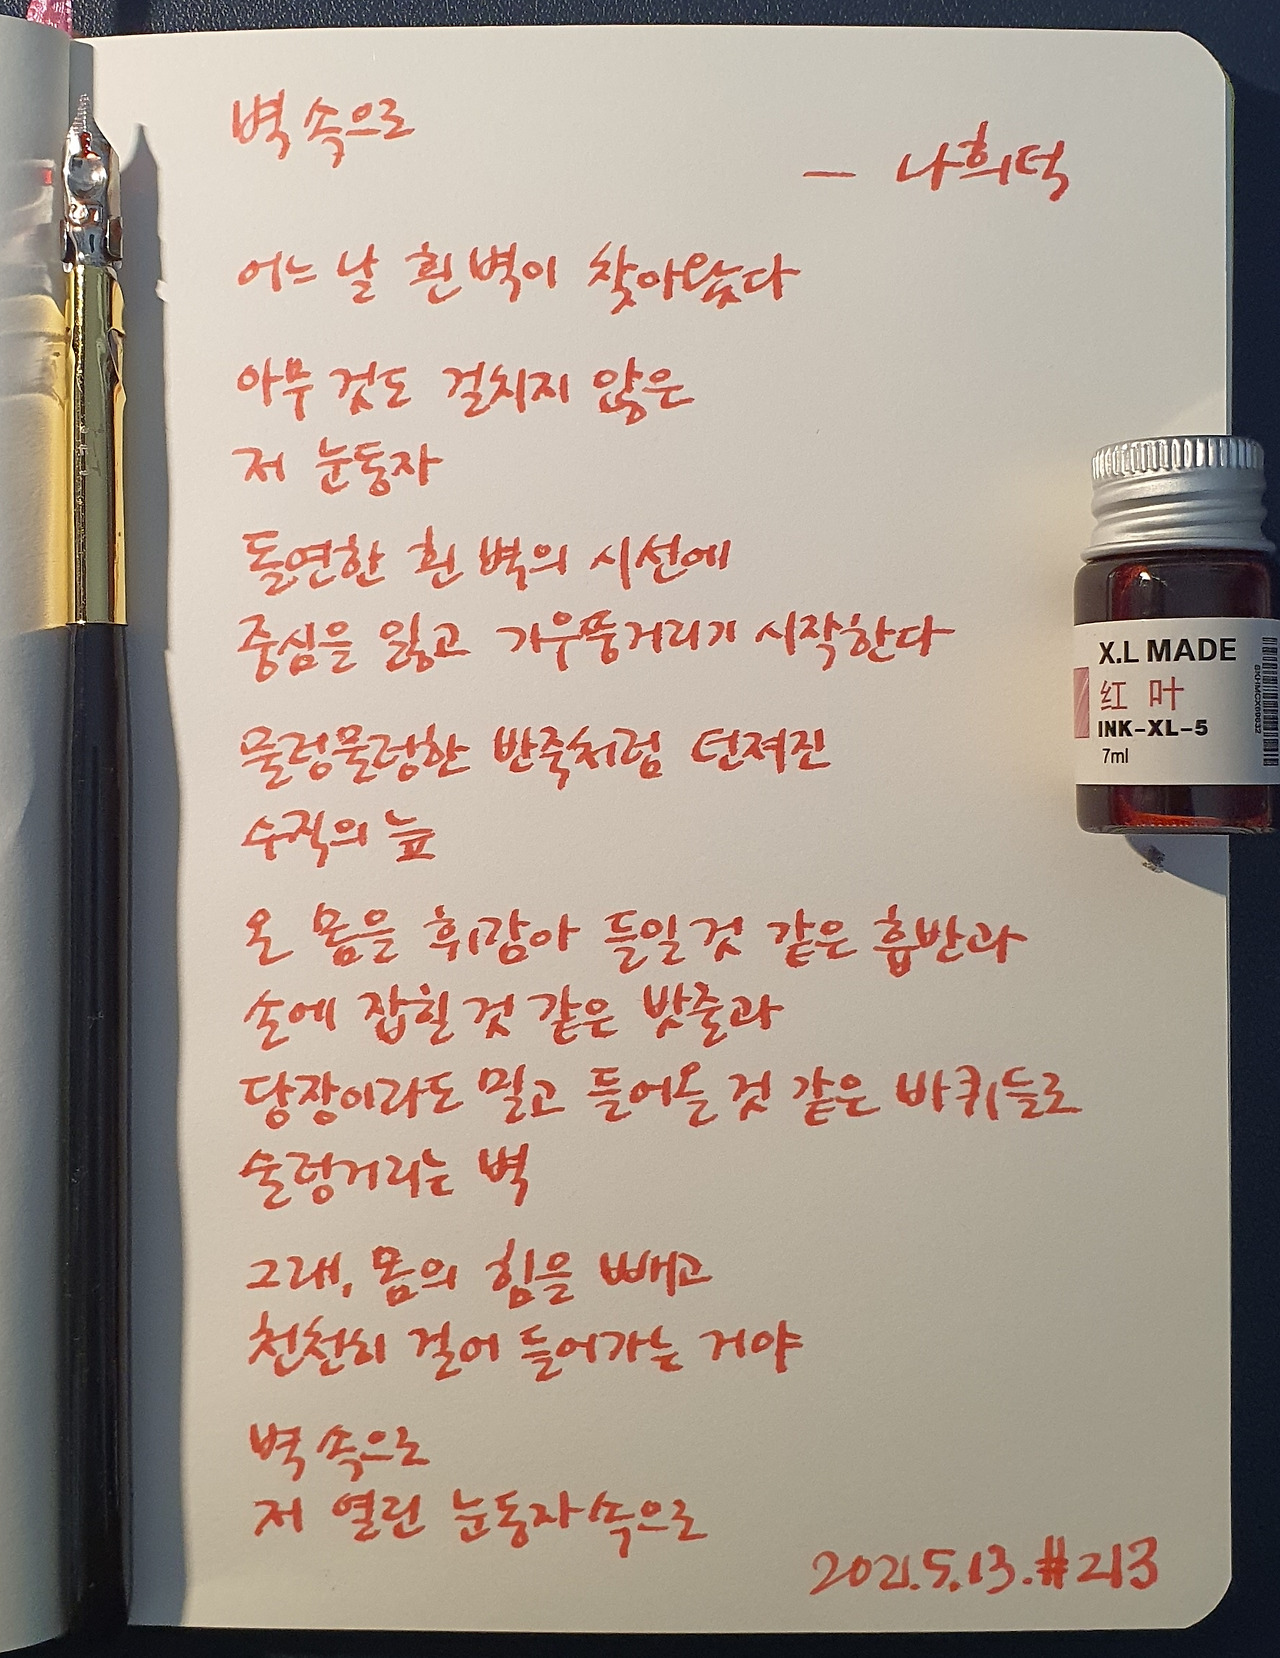 벽 속으로
— 나희덕
어느 날 흰 벽이 찾아왔다
아무 것도 걸치지 않은
저 눈동자
돌연한 흰 벽의 시선에
중심을 잃고 가우뚱거리기 시작한다
물렁물렁한 반죽처럼 던져진
수직의 늪
온 몸을 휘감아 들일 것 같은 흡반과
손에 잡힐 것 같은 밧줄과
당장이라도 밀고 들어올 것 같은 바퀴들로
술렁거리는 벽
그래, 몸의 힘을 빼고
천천히 걸어 들어가는 거야
벽 속으로
저 열린 눈동자 속으로
2021.5.13.#213
X.L MADE
红 叶
INK-XL-5
7ml